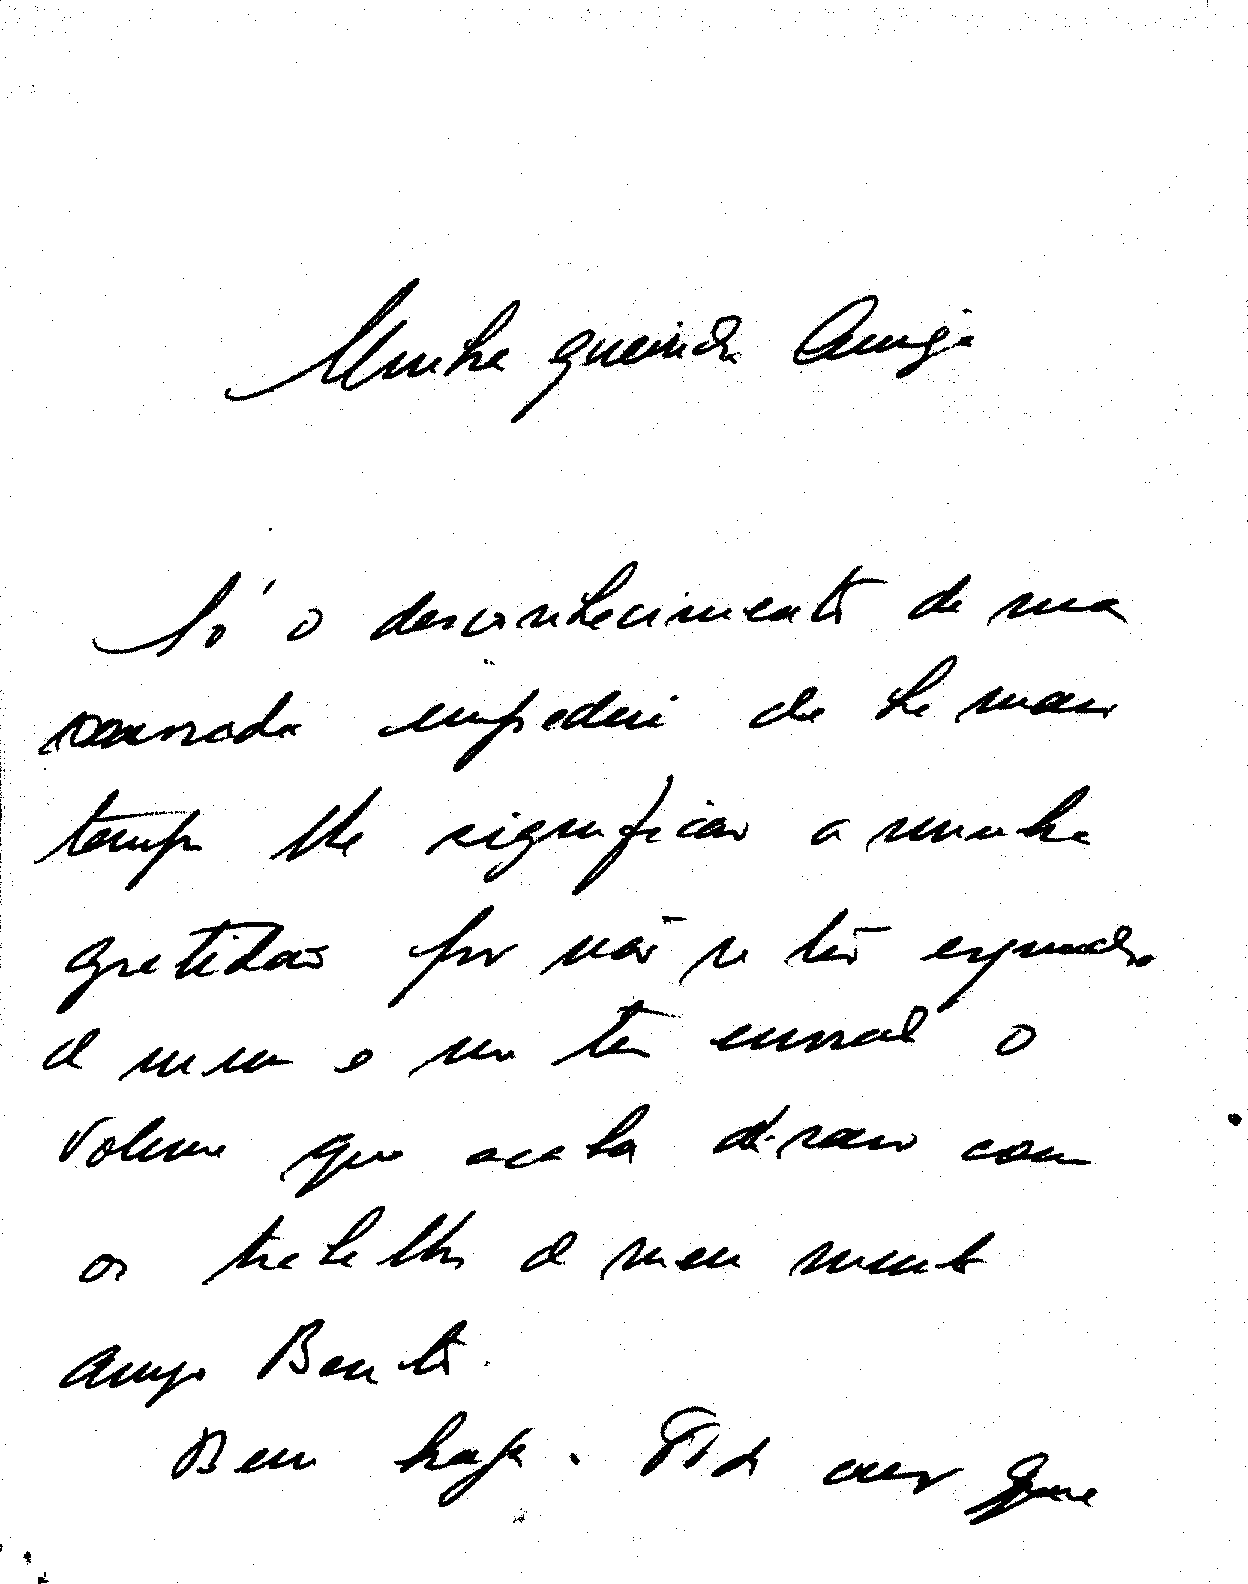 Minha querida Amiga
Só o desconhecimento de sua
morada impediu de há mais
tempo lhe significar a minha
gratidão por não se ter esquecido
de mim e me ter enviado o
volume que acaba de sair com
os trabalhos do meu muito
amigo Bento.
Bem haja. Pode crer que